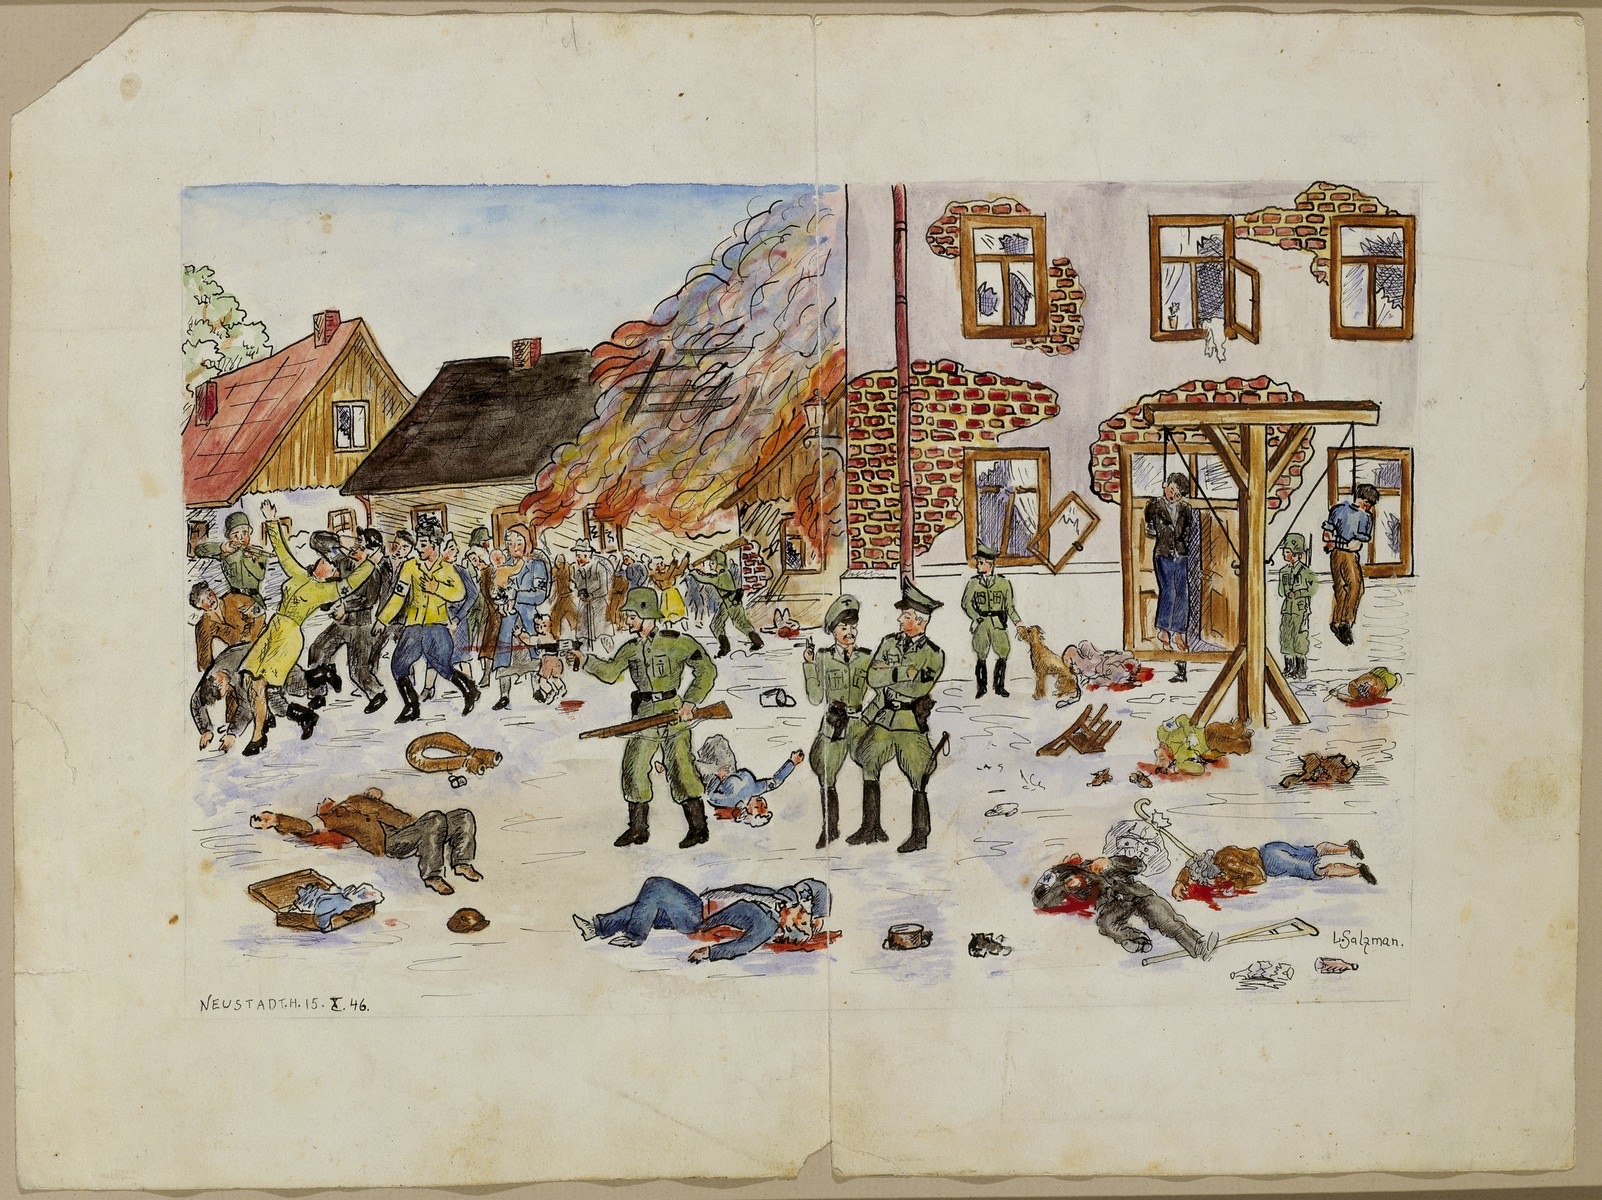 L. Salzman.
NEUSTADT.H. 15. X. 46.